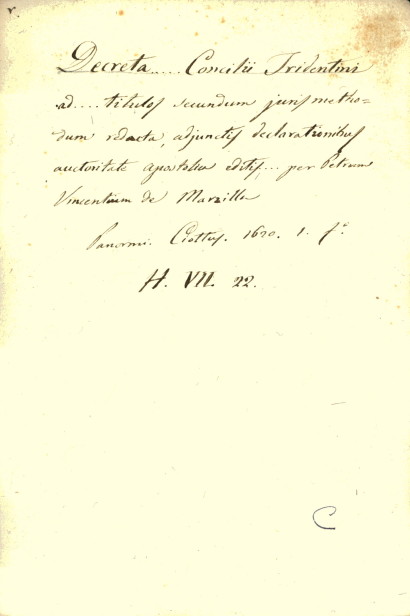 Decreta..... Concilii Tridentini
ad.... titulos secundum juris metho=
dum redacta, adjunctis declarationibus
auctoritate apostolica editis... per Petrum
Vincentium de Marzilla
Panormi. Ciottus. 1620. 1. fº
H. VII. 22.
C